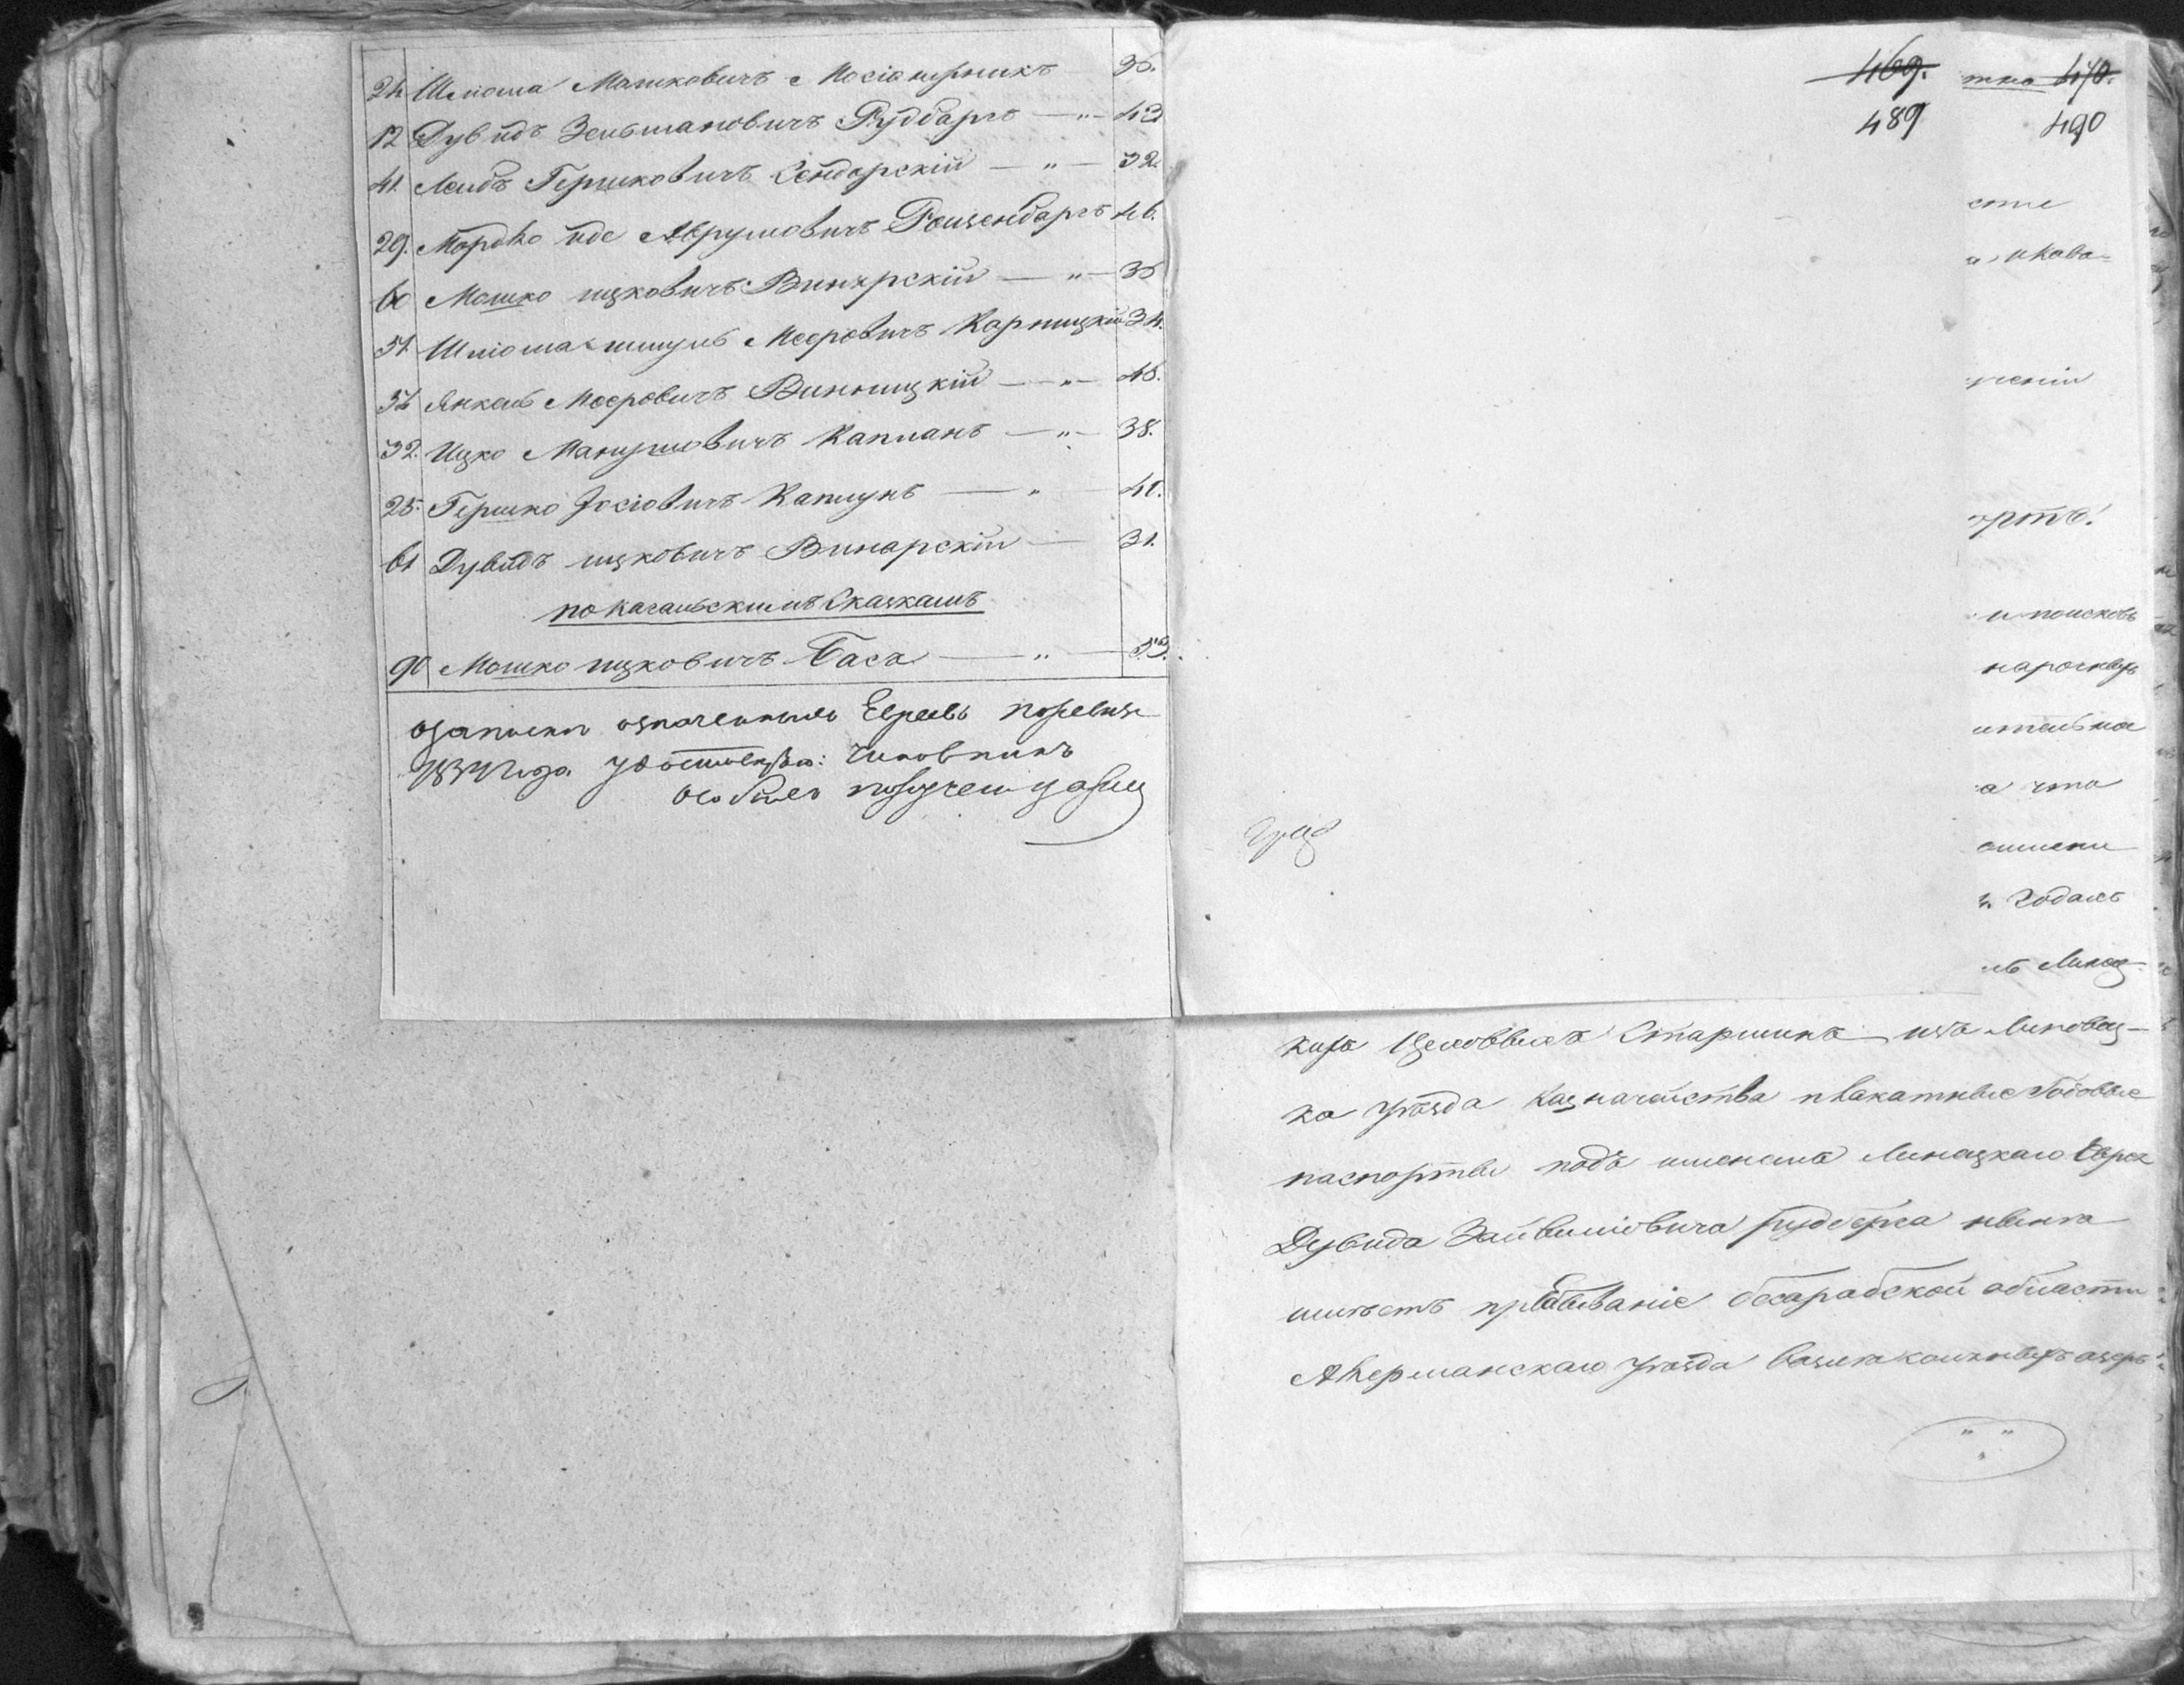 24 Шлома Машковичъ 35.
12 Дувидъ Зельмановичъ Рудбаргъ — " — 43
41. Лейбъ Гершковичъ Сендарскій — " — 32.
29. Мордко Иос Абрумовичъ 46.
60 Мошко ицковичъ Винярскій — " — 35
51. Шлома шмуль Мееровичъ Карницкій 34.
52 Янкель Мееровичъ Винницкій — " — 45.
32. Ицко Манушовичъ Капланъ — " — 38.
25. Гершко Іосіовичъ Капщунъ — " — 41.
61 Дувидъ ицковичъ Винарскій — 31.
по кагальскимъ сказкамъ
90 Мошко ицковичъ Баса — " — 53.
о записки означенныхъ Евреевъ по ревизи
1834 года удостовѣряю: Чиновникъ
особыхъ порученій
469. 470.
489 490
сти
а, икова=
ученіи
орте!
и поисковъ
нарочныхъ
ительна
а что
ошиени
г. Годахъ
Граф
въ Липов-
кихъ Цеховыхъ Старшинъ изъ Липовец-
ка уѣзда Казначейства плакатные Годовые
паспорты подъ именемъ Линецкаго Еврея
Дувида Зайвиліовича Рудберга
имѣетъ пребываніе бесарабской области
Акерманскаго уѣзда